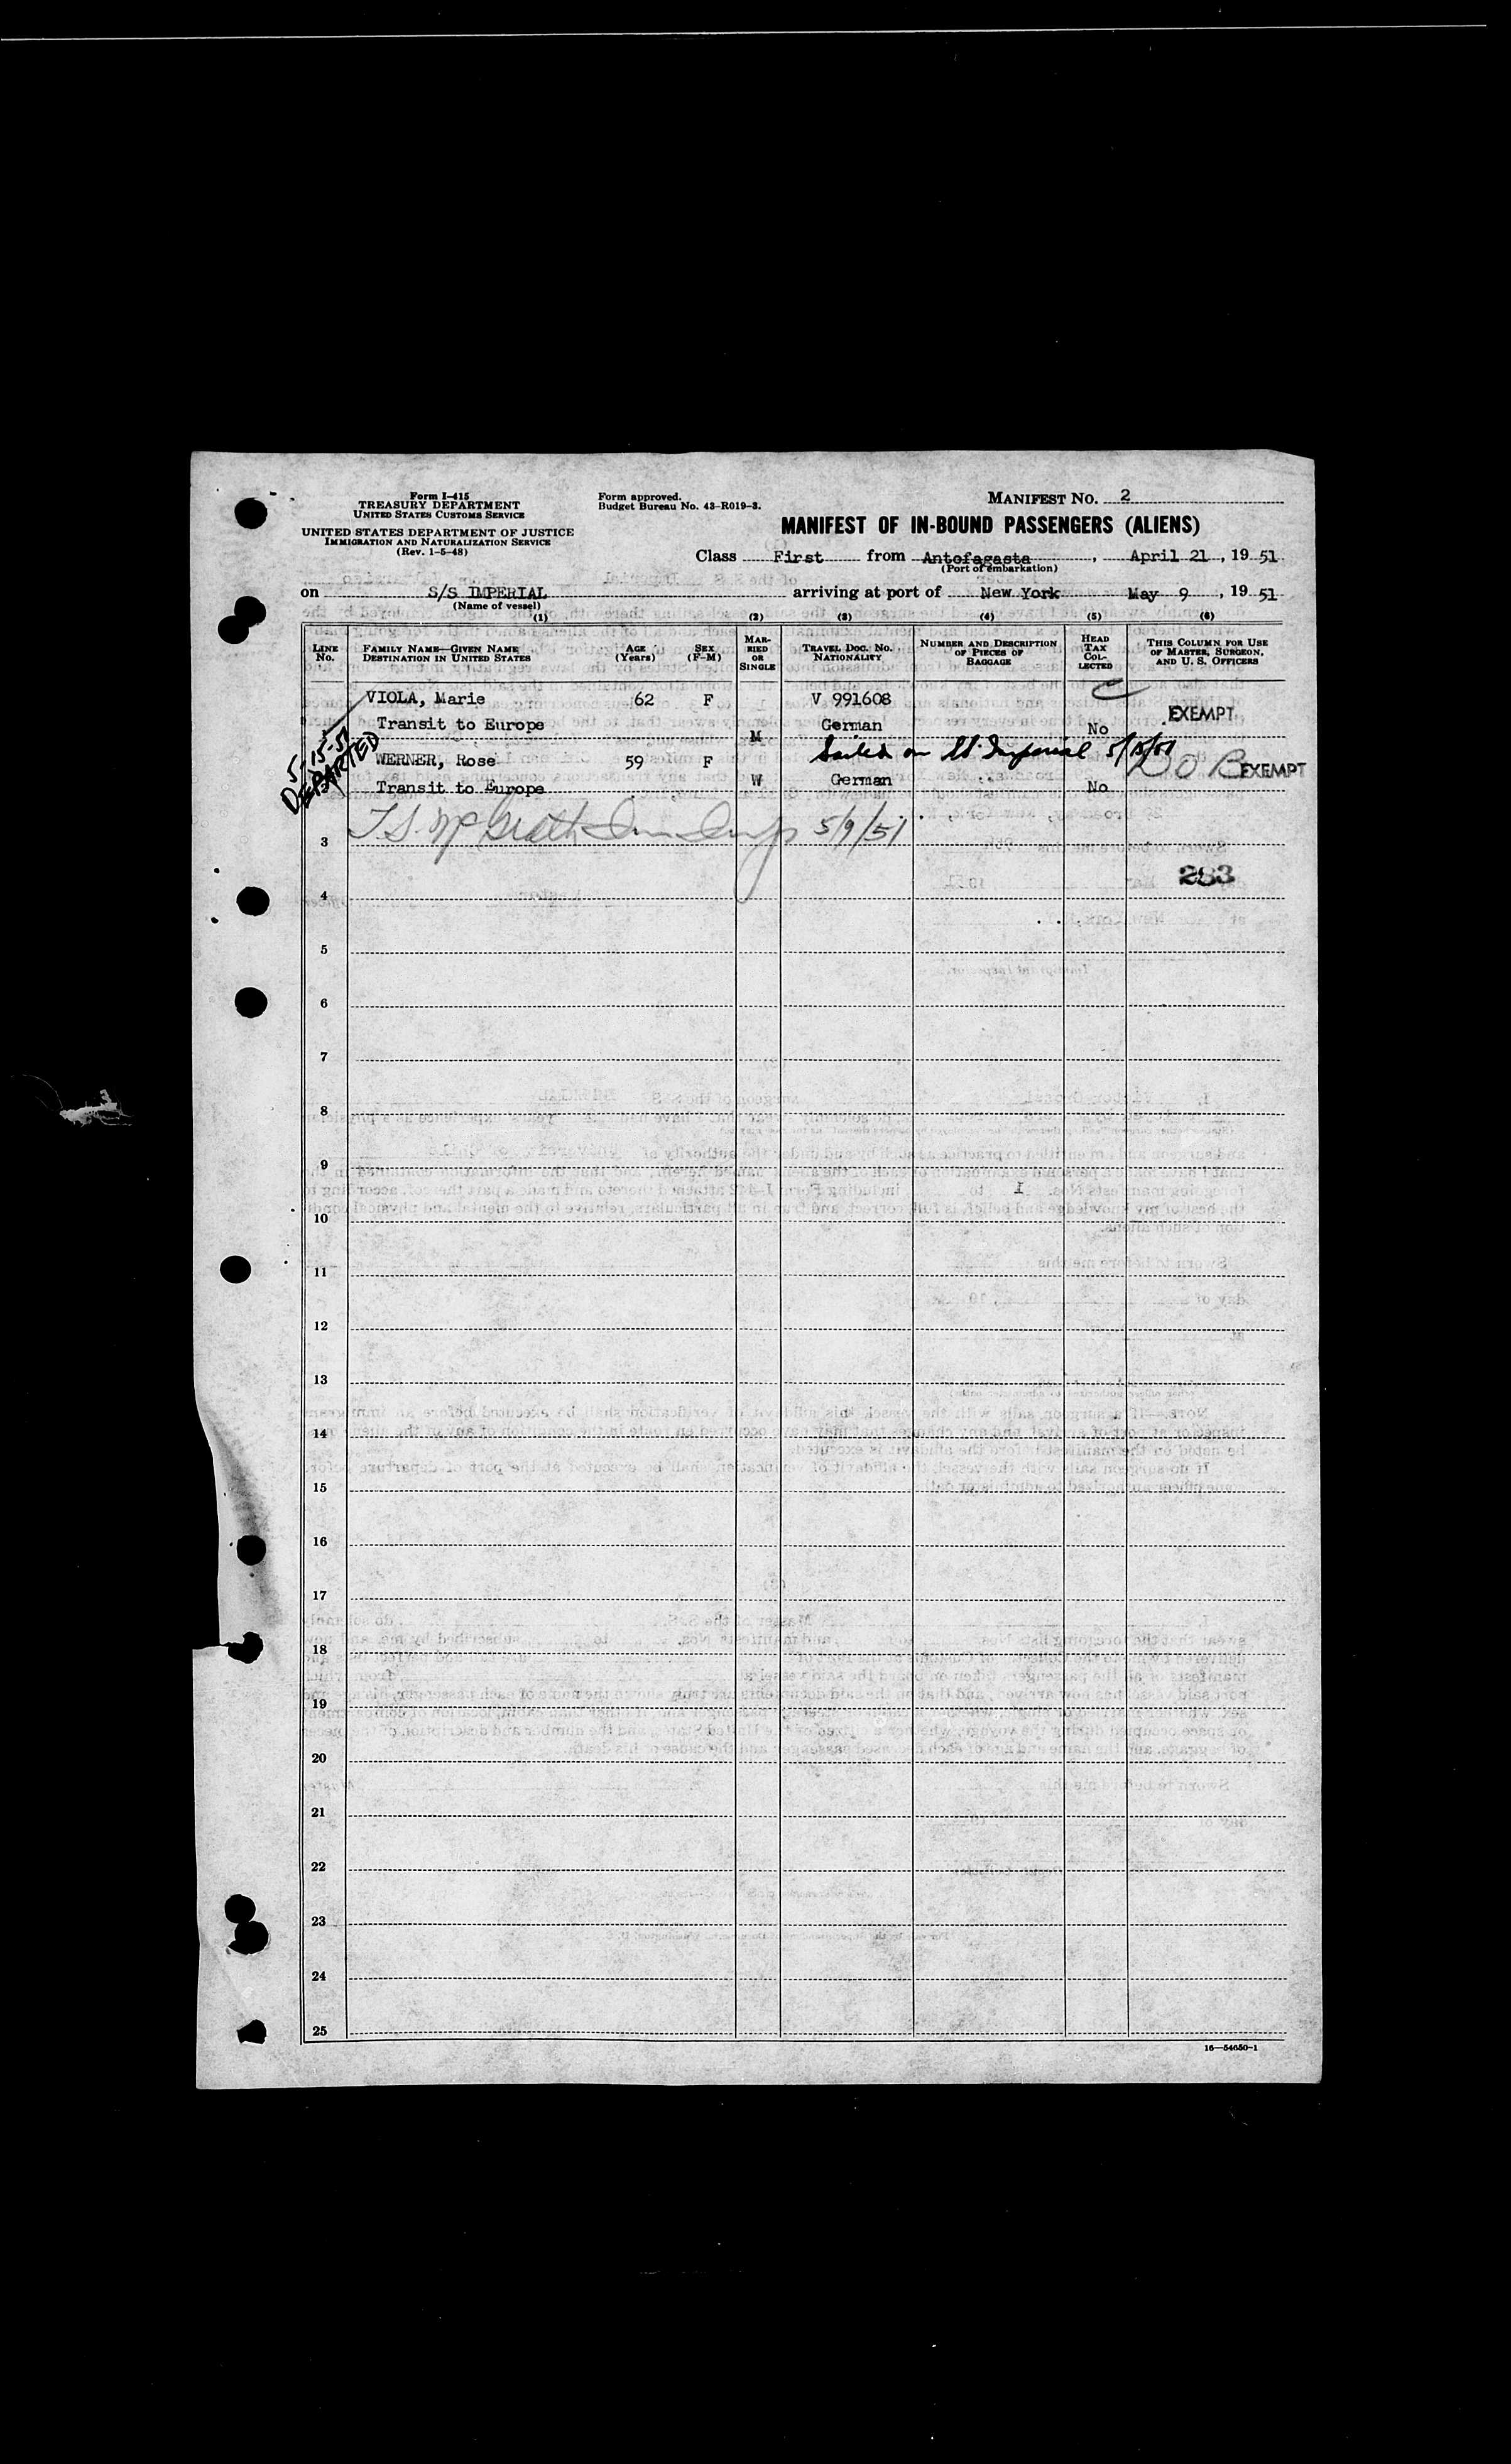 Form I-415
TREASURY DEPARTMENT
UNITED STATES CUSTOMS SERVICE
UNITED STATES DEPARTMENT OF JUSTICE
IMMIGRATION AND NATURALIZATION SERVICE
(Rev. 1-5-48)
Form approved.
Budget Bureau No. 43-R019-3.
MANIFEST NO. 2
MANIFEST OF IN-BOUND PASSENGERS (ALIENS)
Class First from Antofagasta, April 21, 19 51
(Port of embarkation)
on S/S IMPERIAL arriving at port of New York May 9, 19 51
(Name of vessel)
(1) (2) (3) (4) (5) (6)
LINE No. FAMILY NAME—GIVEN NAME DESTINATION IN UNITED STATES AGE (Years) SEX (F-M) MARRIED OR SINGLE TRAVEL DOC. NO. NATIONALITY NUMBER AND DESCRIPTION OF PIECES OF BAGGAGE HEAD TAX COLLECTED THIS COLUMN FOR USE OF MASTER, SURGEON, AND U. S. OFFICERS
VIOLA, Marie 62 F V 991608
Transit to Europe M German No EXEMPT
5-15-51
DEPARTED
Sailed on SS Imperial 5/15/51
WERNER, Rose 59 F EXEMPT
Transit to Europe W German No
3 T.S. McGrath 5/9/51
283
4
5
6
7
8
9
10
11
12
13
14
15
16
17
18
19
20
21
22
23
24
25
16—54650-1